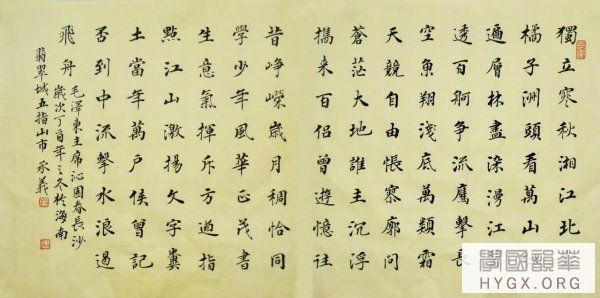 獨立寒秋湘江北
橘子洲頭看萬山
遍層林盡染漫江
透百舸爭流鷹擊長
空魚翔淺底萬類霜
天競自由悵寥廓問
蒼茫大地誰主沉浮
攜來百侶曾遊憶往
昔崢嶸歲月稠恰同
學少年風華正茂書
生意氣揮斥方遒指
點江山激揚文字糞
土當年萬戶侯曾記
否到中流擊水浪遏
飛舟
毛澤東主席沁園春長沙
歲次丁酉年之冬於海南
翡翠城五指山市 承義
學國韻華
HYGX.ORG